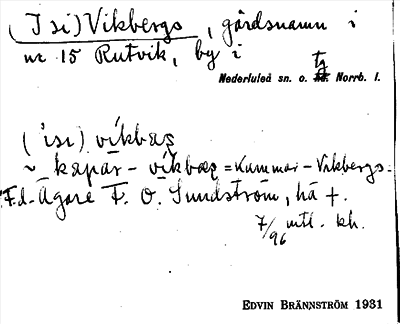 ( I si) Vikbergs, gårdsnamn i
nr 15 Rutvik, by i
tg
Nederluleå sn. o. Norrb. l.
( 'isı) víkbæș
~ kapar - víkbæș = Kammar - Vikbergs.
F.d. Ägare F. O. Sundström, hå †.
7/96 mtl. kh.
EDVIN BRÄNNSTRÖM 1931